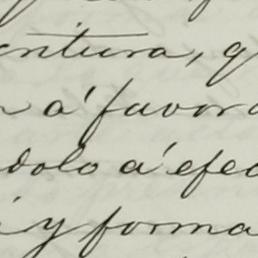 entura, q
n á favor
dolo á efec
y forma